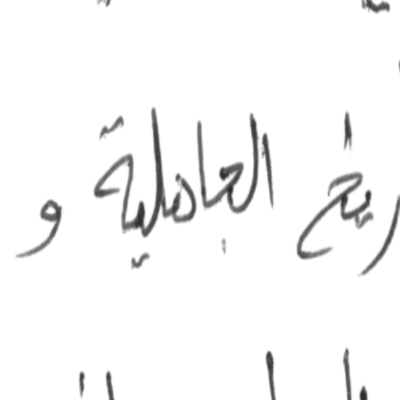 ريخ الجاهلية و